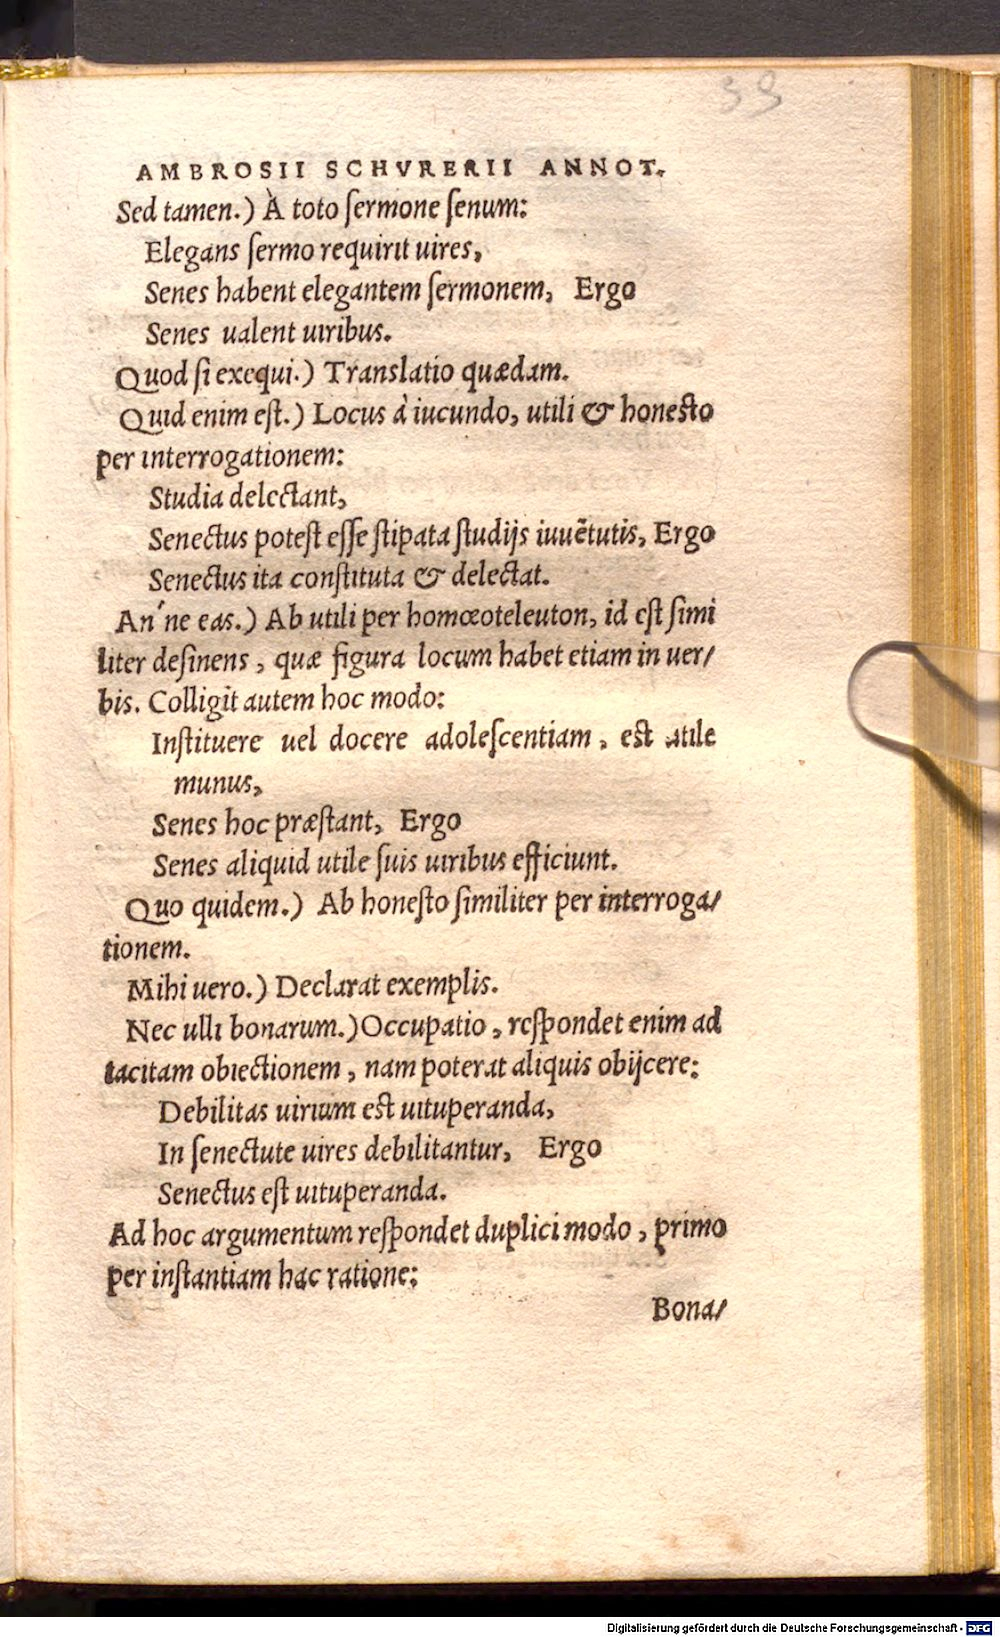 39
AMBROSII SCHVRERII ANNOT.
Sed tamen.) À toto ſermone ſenum:
Elegans ſermo requirit uires,
Senes habent elegantem ſermonem, Ergo
Senes ualent uiribus.
Quod ſi exequi.) Translatio quædam.
Quid enim eſt.) Locus à iucundo, utili & honesto
per interrogationem:
Studia delectant,
Senectus poteſt eſſe ſtipata ſtudijs iuuẽtutis, Ergo
Senectus ita conſtituta & delectat.
An´ne eas.) Ab utili per homœoteleuton, id eſt ſimi
liter deſinens, quæ figura locum habet etiam in uer/
bis. Colligit autem hoc modo:
Inſtituere uel docere adoleſcentiam, est utile
munus,
Senes hoc præſtant, Ergo
Senes aliquid utile ſuis uiribus efficiunt.
Quo quidem.) Ab honeſto ſimiliter per interroga/
tionem.
Mihi uero.) Declarat exemplis.
Nec ulli bonarum.) Occupatio, reſpondet enim ad
tacitam obiectionem, nam poterat aliquis obijcere:
Debilitas uirium est uituperanda,
In ſenectute uires debilitantur, Ergo
Senectus eſt uituperanda.
Ad hoc argumentum reſpondet duplici modo, primo
per inſtantiam hac ratione:
Bona/
Digitalisierung gefördert durch die Deutsche Forschungsgemeinschaft - DFG